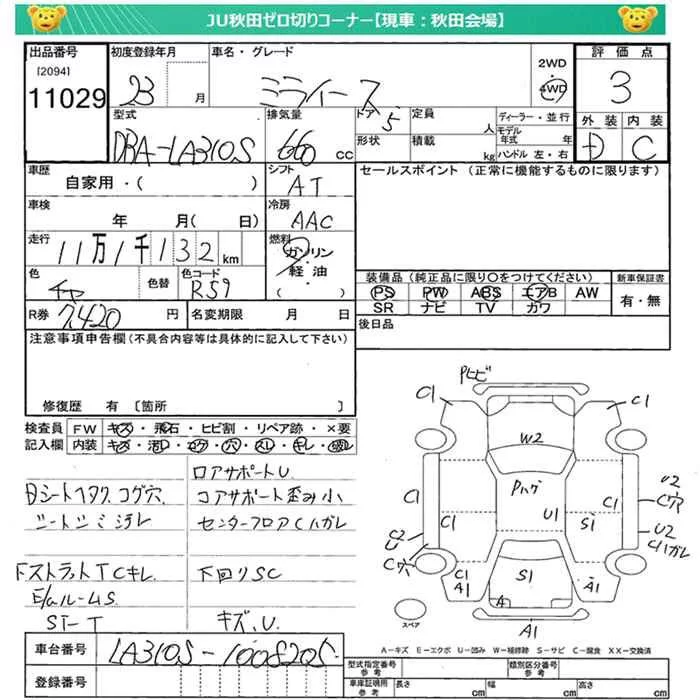 JU秋田ゼロ切りコーナー【現車：秋田会場】
出品番号
[2094]
11029
初度登録年月
23 月
車名・グレード
ミライース
2WD
4WD
評価点
3
外装 内装
D C
型式
DBA-LA310S
排気量
660 cc
ドア 5
定員 人
形状
積載 kg
ディーラー・並行
モデル年式 年
ハンドル 左・右
車歴
自家用・( )
シフト
AT
セールスポイント (正常に機能するものに限ります)
車検
年 月( 日)
冷房
AAC
走行
11万1千132km
燃料
ガソリン
軽油
( )
色
チャ
色替
色コード
R59
装備品 (純正品に限り○をつけてください)
PS PW ABS エアB AW
SR ナビ TV カワ
新車保証書
有・無
R券 7,420 円
名変期限 月 日
後日品
注意事項申告欄 (不具合内容等は具体的に記入して下さい)
修復歴 有 [箇所 ]
検査員 FW キズ・飛石・ヒビ割・リペア跡・×要
記入欄 内装 キズ・汚レ・コゲ・穴・スレ・キレ・破レ
ロアサポートU
コアサポート歪み小
シートシミ汚レ
センターフロアCハガレ
FストラットTCキレ
下回りSC
キズ、U.
Pヒビ
C1
C1
W2
Pハゲ
C1
C1
U1
S1
C1
U2
C穴
U2
C1ハガレ
C2
U
C穴
C1
A1
S1
A
A1
A1
スペア
A－キズ E－エクボ U－凹み W－補修跡 S－サビ C－腐食 XX－交換済
車台番号
LA310S-1008205
登録番号
型式指定番号
参考
類別区分番号
参考
車庫証明用
参考
長さ cm 幅 cm 高さ cm